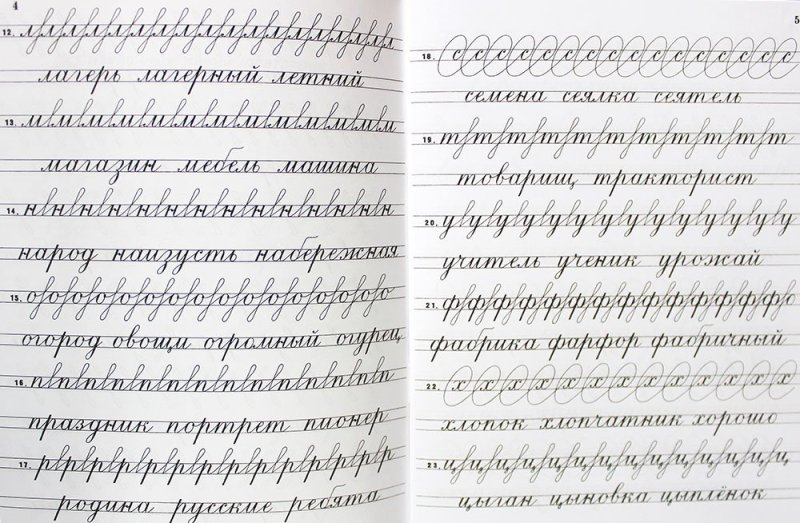 4
12. л л л л л л л л л л л л л л л л л л
лагерь лагерный летний
13. м м м м м м м м м м м м м м
магазин мебель машина
14. н н н н н н н н н н н н н н
народ наизусть набережная
15. о о о о о о о о о о о о о о о о о
огород овощи огромный огурец
16. п п п п п п п п п п п п п п
праздник портрет пионер
17. р р р р р р р р р р р р р р
родина русские ребята
5
18. с с с с с с с с с с с с с с с с
семена сеялка сеятель
19. т т т т т т т т т т т
товарищ тракторист
20. у у у у у у у у у у у у у
учитель ученик урожай
21. ф ф ф ф ф ф ф ф ф ф ф ф ф
фабрика фарфор фабричный
22. х х х х х х х х х х х х х
хлопок хлопчатник хорошо
23. ц ц ц ц ц ц ц ц ц ц ц ц ц
цыган цыновка цыплёнок